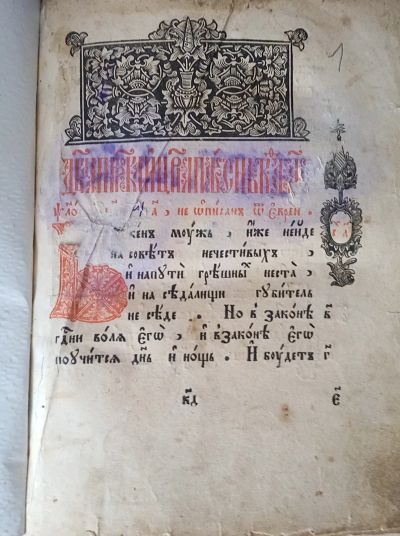 1
не ѡ҆писанъ ѿ Є҆врей .
женъ моужъ , и҆же неи҆де
на совѣтъ нечестивыхъ .
И҆ напути грѣшны неста ,
и҆ на сѣдалищи губитель
не сѣде . Но в законѣ в҃
гд҃ни воля Є҆гѡ̀ , и҆ взаконѣ Є҆гѡ̀
поучится дн҃ь и҆ нощь . И҆ боудетъ г҃
к҃д є҃